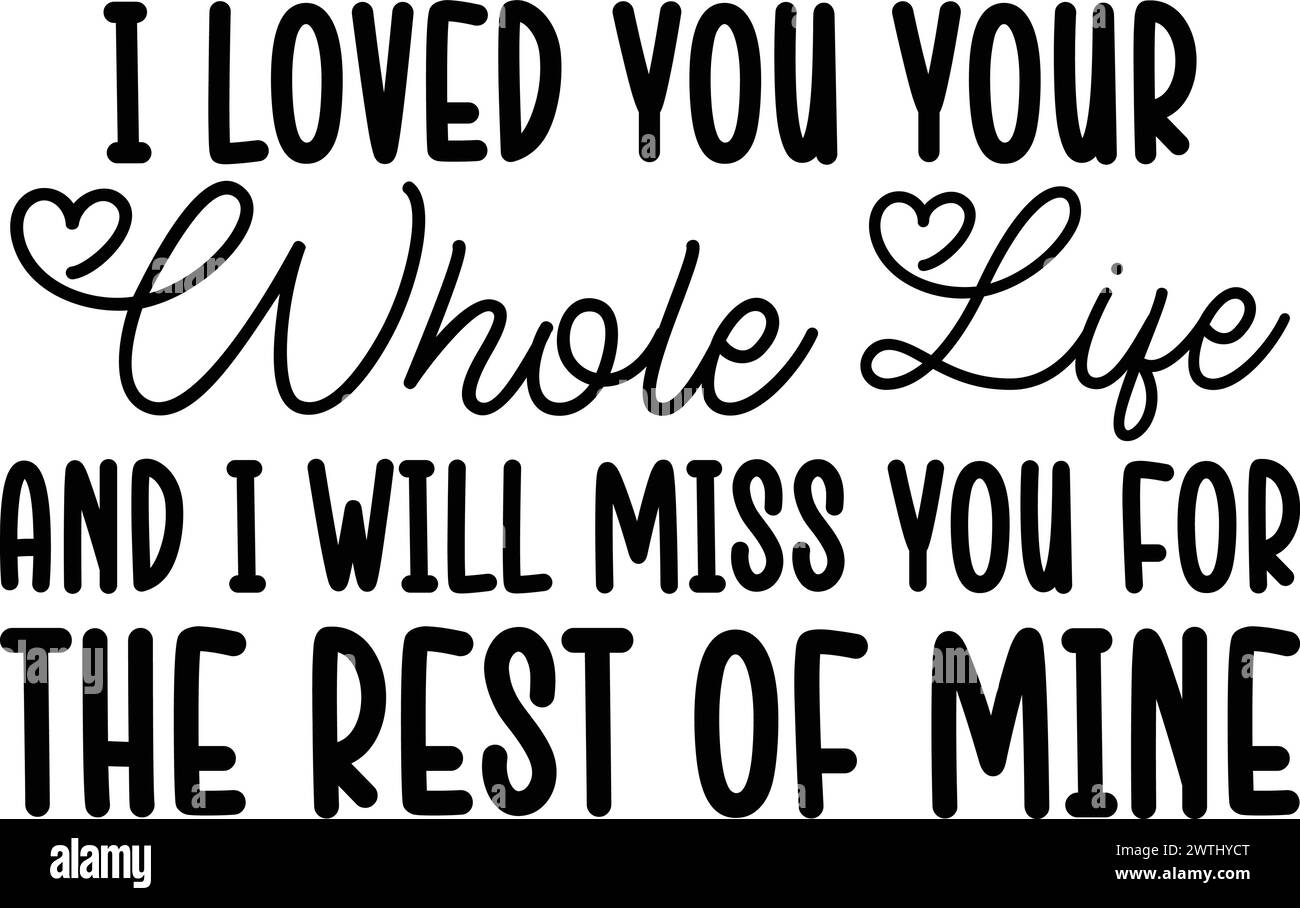 I LOVED YOU YOUR
Whole Life
AND I WILL MISS YOU FOR
THE REST OF MINE
alamy
Image ID: 2WTHYCT
www.alamy.com